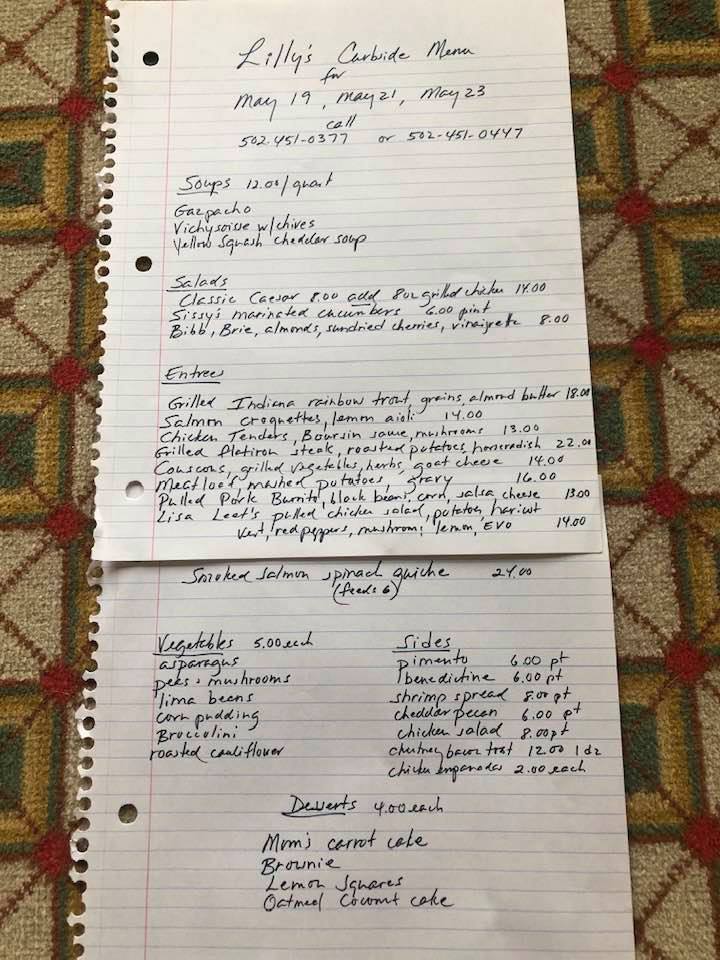 Lilly's Curbside Menu
for
May 19, May 21, May 23
call
502.451-0377 or 502-451-0447
Soups 12.00/quart
Gazpacho
Vichysoisse w/chives
Yellow Squash cheddar soup
Salads
Classic Caesar 8.00 add 8oz grilled chicken 14.00
Sissy's marinated cucumbers 6.00 pint
Bibb, Brie, almonds, sundried cherries, vinaigrette 8.00
Entrees
Grilled Indiana rainbow trout, grains, almond butter 18.00
Salmon croquettes, lemon aioli 14.00
Chicken Tenders, Boursin sauce, mushrooms 13.00
Grilled flatiron steak, roasted potatoes, horseradish 22.00
Couscous, grilled vegetables, herbs, goat cheese 14.00
Meatloaf, mashed potatoes, gravy 16.00
Pulled Pork Burrito, black beans, corn, salsa cheese 13.00
Lisa Leet's pulled chicken salad, potatoes, haricot
vert, red peppers, mushrooms, lemon, EVO 14.00
Smoked salmon spinach quiche 24.00
(feeds 6)
Vegetables 5.00 each
asparagus
peas & mushrooms
lima beans
corn pudding
Broccolini
roasted cauliflower
Sides
pimento 6.00 pt
benedictine 6.00 pt
shrimp spread 8.00 pt
cheddar pecan 6.00 pt
chicken salad 8.00 pt
chutney bacon toast 12.00 1 dz
chicken empanadas 2.00 each
Desserts 4.00 each
Mom's carrot cake
Brownie
Lemon Squares
Oatmeal Coconut cake